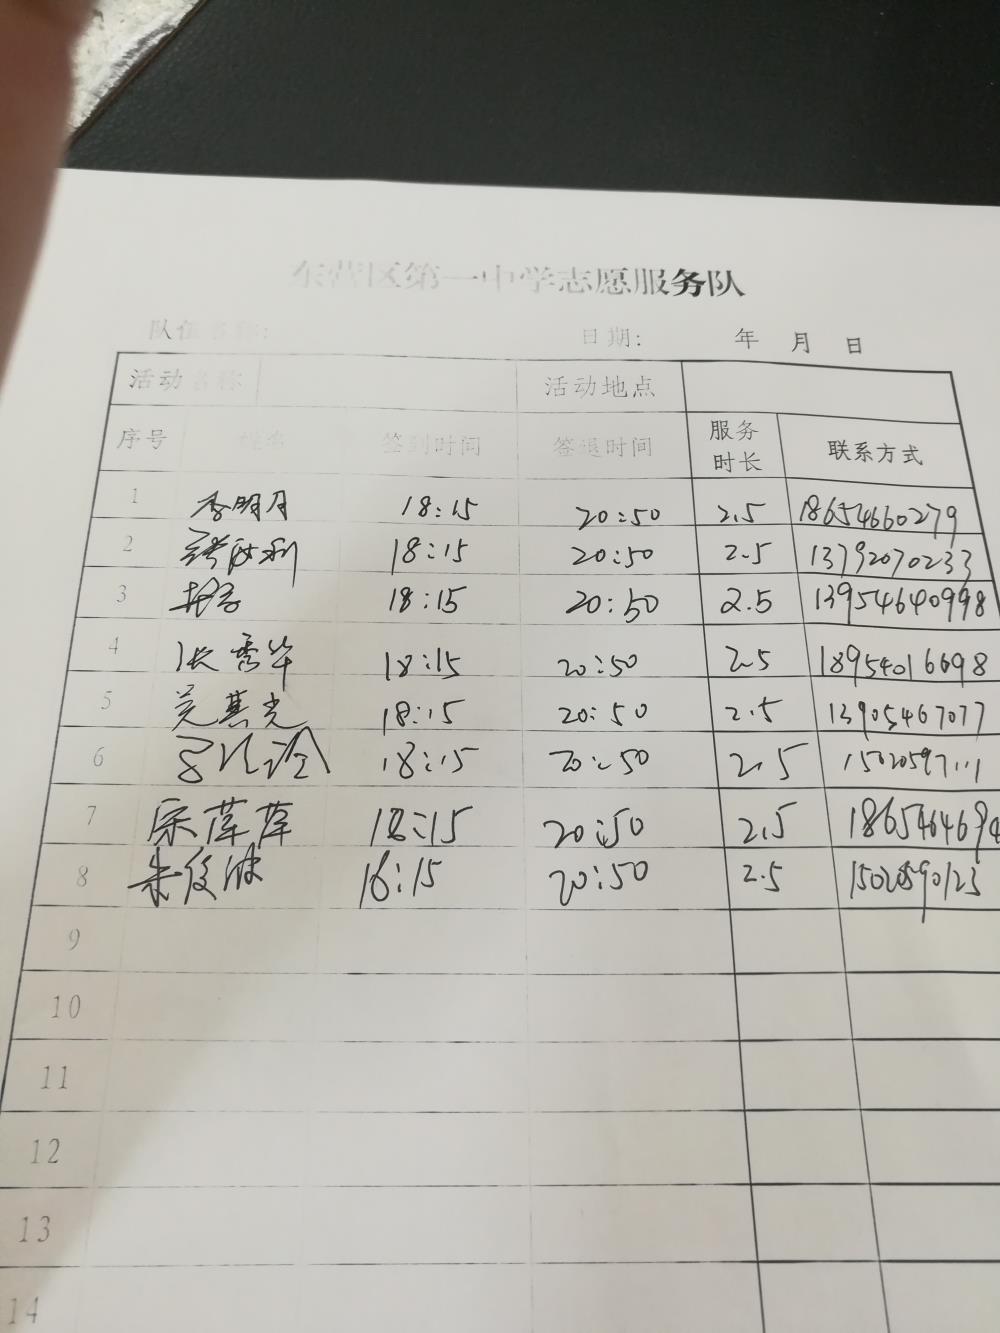 东营区第一中学志愿服务队
队伍名称: 日期: 年 月 日
活动名称 活动地点
序号 姓名 签到时间 签退时间 服务时长 联系方式
1 李明月 18:15 20:50 2.5 18654660279
2 18:15 20:50 2.5 13792070233
3 18:15 20:50 2.5 13954640998
4 张秀华 18:15 20:50 2.5 18954016698
5 吴其光 18:15 20:50 2.5 13905467077
6 18:15 20:50 2.5 15020597111
7 宋萍萍 18:15 20:50 2.5 1865464694
8 朱俊波 18:15 20:50 2.5 15020590123
9
10
11
12
13
14